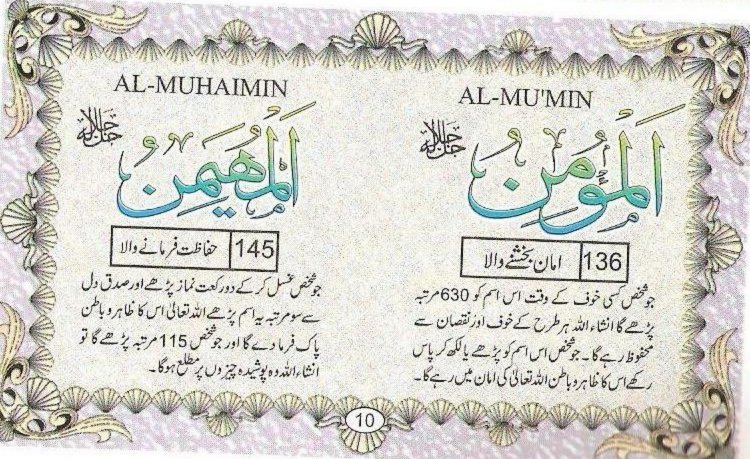 AL-MU'MIN
اَلْمُؤْمِنُ
جل جلالہ
136 امان بخشنے والا
جو شخص کسی خوف کے وقت اس اسم کو 630 مرتبہ
پڑھے گا انشاء اللہ ہر طرح کے خوف اور نقصان سے
محفوظ رہے گا۔ جو شخص اس اسم کو پڑھے یا لکھ کر پاس
رکھے اس کا ظاہر و باطن اللہ تعالیٰ کی امان میں رہے گا۔
AL-MUHAIMIN
اَلْمُهَيْمِنُ
جل جلالہ
145 حفاظت فرمانے والا
جو شخص غسل کر کے دو رکعت نماز پڑھے اور صدق دل
سے سو مرتبہ یہ اسم پڑھے اللہ تعالیٰ اس کا ظاہر و باطن
پاک فرما دے گا اور جو شخص 115 مرتبہ پڑھے گا تو
انشاء اللہ وہ پوشیدہ چیزوں پر مطلع ہوگا۔
10